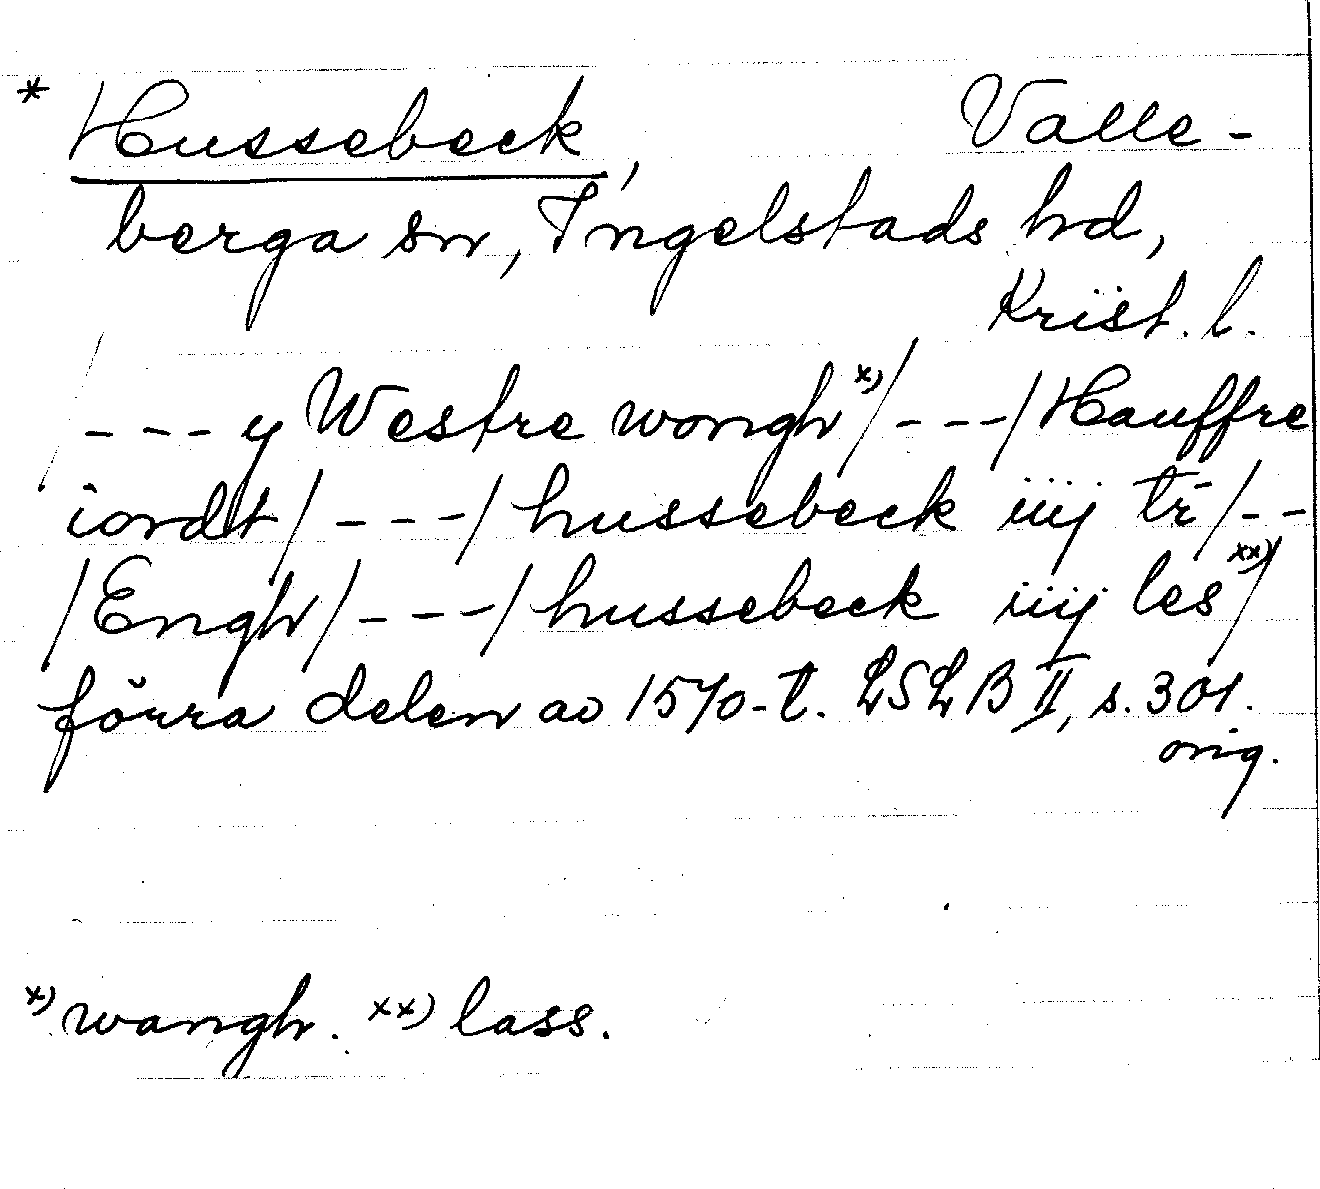 * Hussebeck, Valle-
berga sn, Ingelstads hd,
Krist. l.
/ - - - y Westre wongh x) / - - - / Hauffre
iordt / - - - / hussebeck iiij tr / - -
/ Engh / - - - / hussebeck iiij les xx) /
förra delen av 1570-t. LSLB II, s. 301.
orig.
x) wangh. xx) lass.